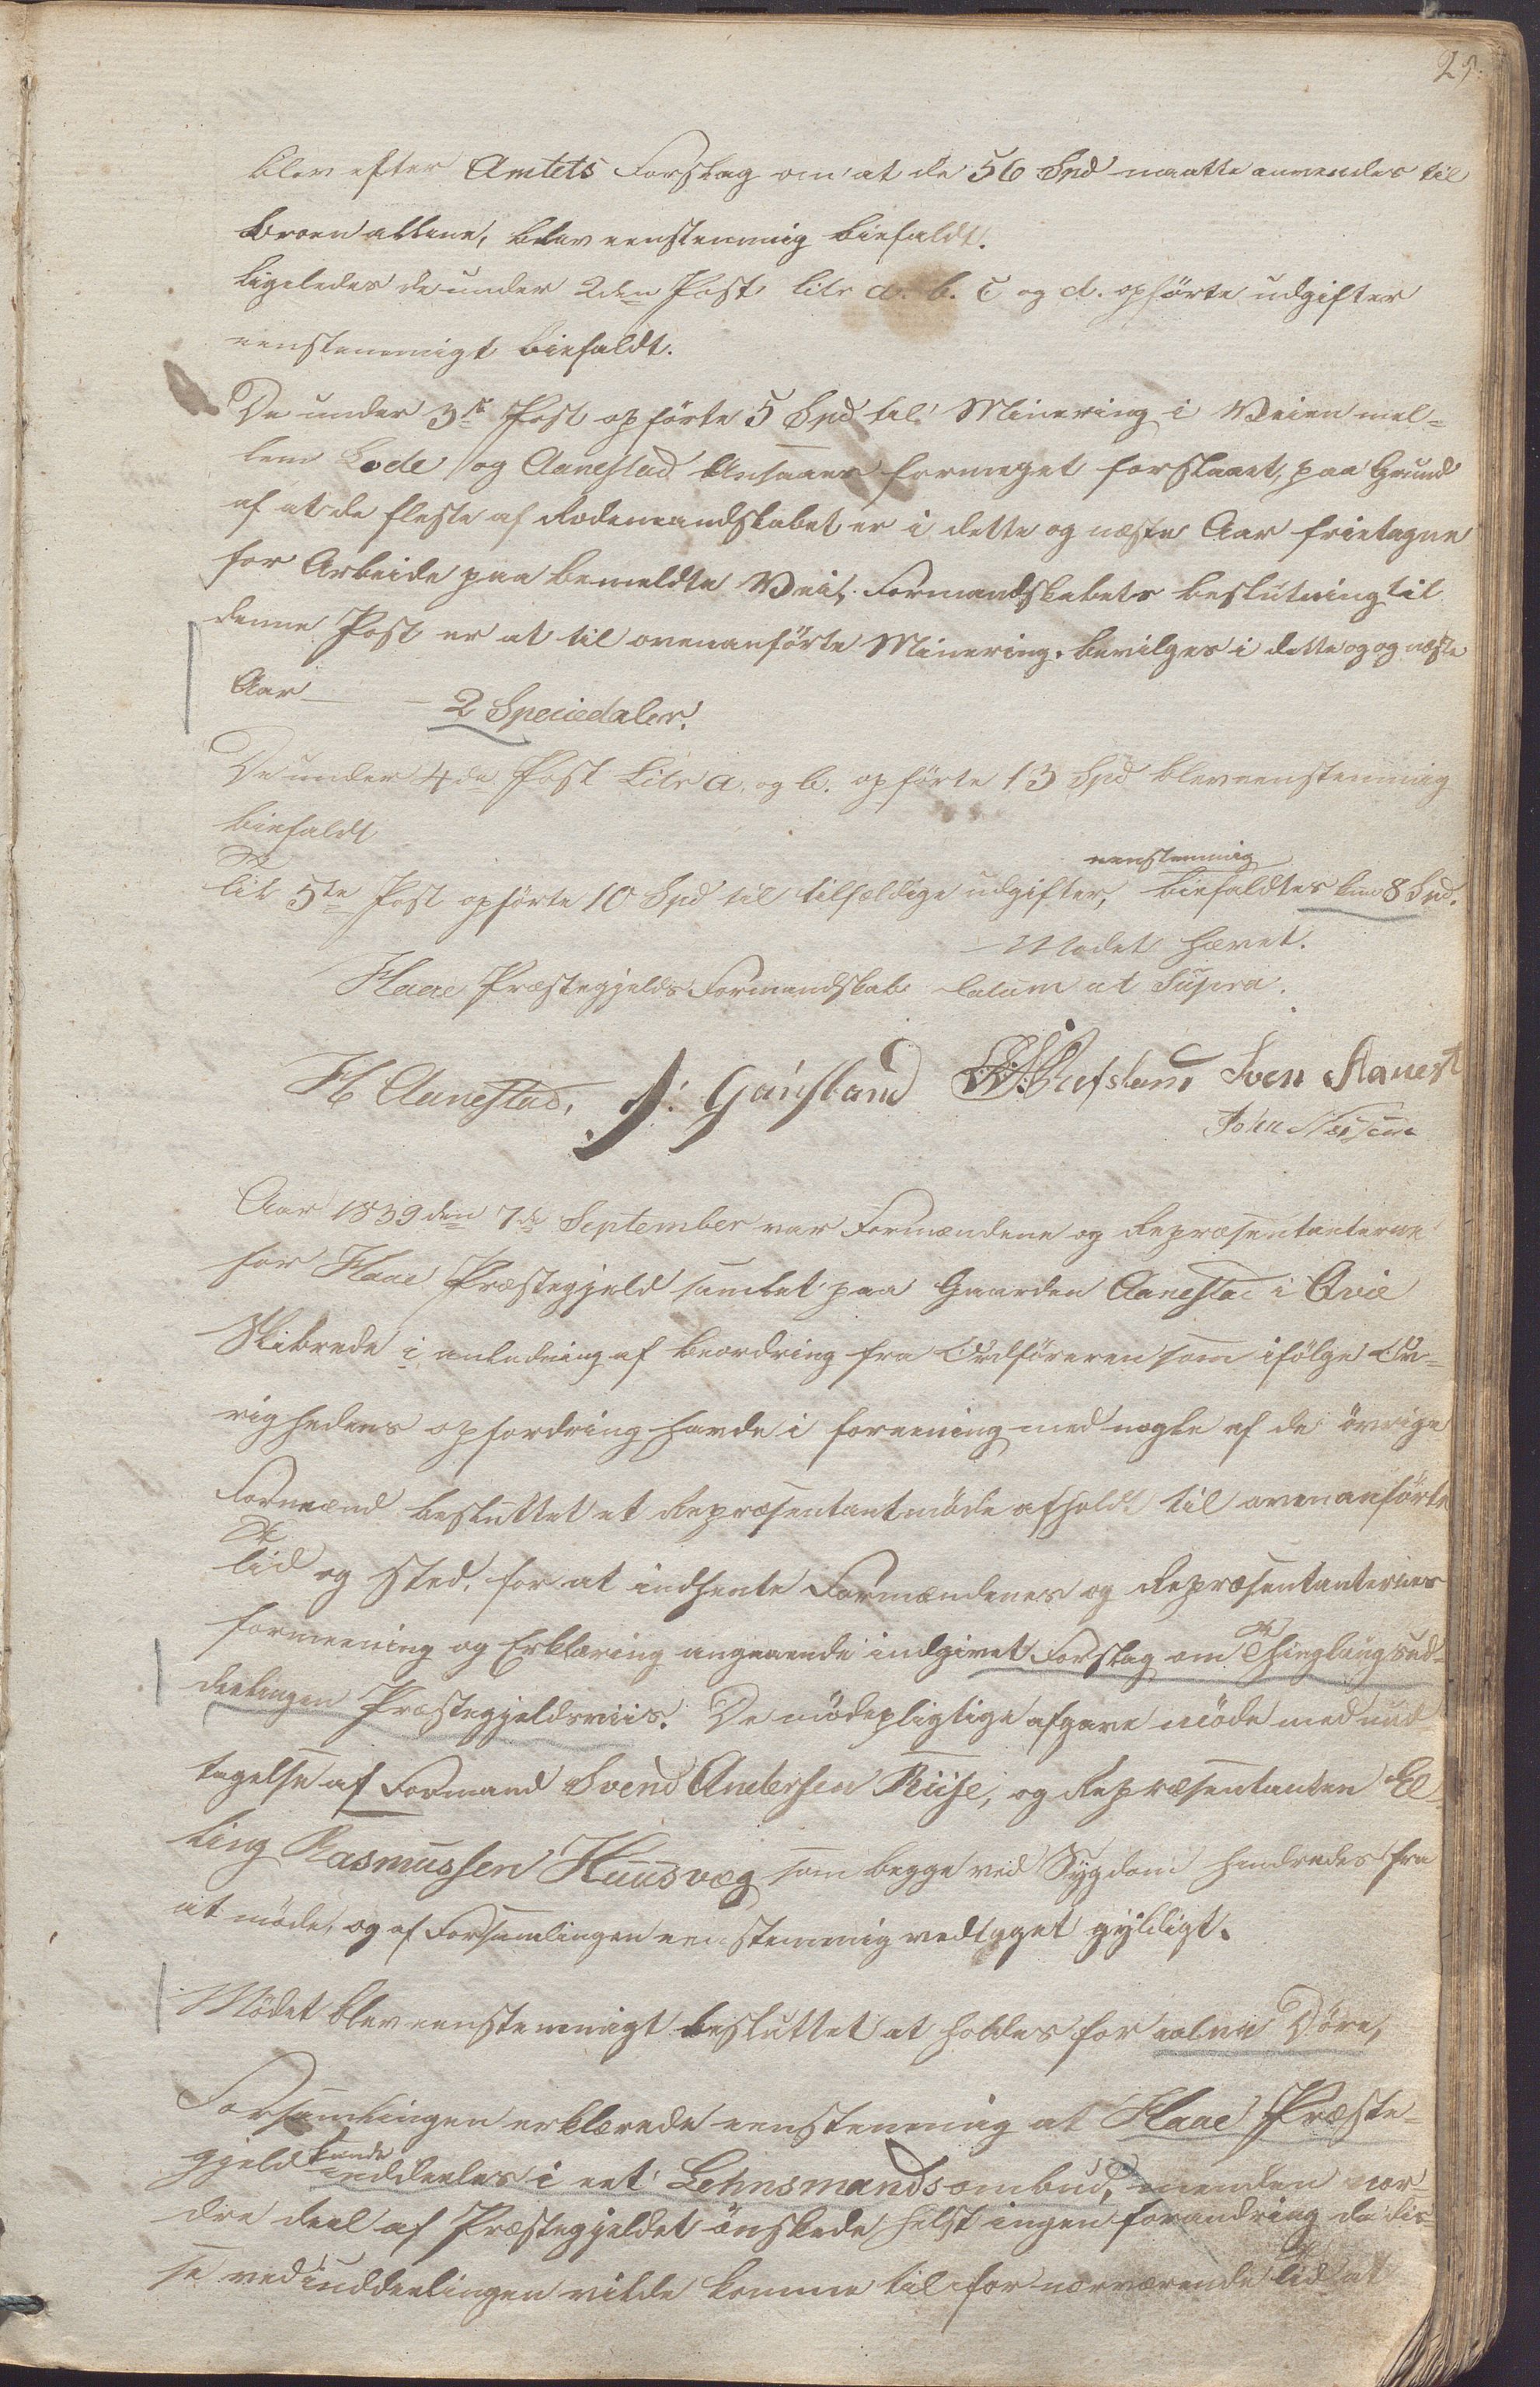 25.
blev efter Amtets Forslag om at de 56 Spd maatte anvendes til
Broen allene, blev eenstemmig biefaldt.
Ligeledes de under 2den Post Litr a. b. c og d. opførte udgifter
eenstemmigt biefaldt.
De under 3die Post opførte 5 Spd til Minering i Veien mel-
lem Lode og Aanestad Ansaaes formeget forslaaet, paa Grund
af at de fleste af Rodemandskabet er i dette og næste Aar frietagne
for Arbeide paa bemeldte Vei, Formandskabets beslutning til
denne Post er at til ovenanførte Minering. bevilges i dette og og næste
Aar — — 2 Speciedaler.
De under 4de Post Litr a. og b. opførte 13 Spd blev eenstemmig
biefaldt
Til 5te Post opførte 10 Spd til tilfældige udgifter, eenstemmig biefaldtes kun 8 Spd.
Mødet hævet.
Haae Præstegjelds Formandskab datum ut Supra.
H Aanestad, J. Gausland Sven Aanest
John
Aar 1839 den 7de September var Formændene og Repræsentanterne
for Haae Præstegjeld samlet paa Gaarden Aanestad i Qvie
Skibrede i anledning af beordring fra Ordføreren som ifølge Øv-
righedens opfordring havde i foreening med nogle af de øvrige
Formænd besluttet et Repræsentantmøde afholdt til ovenanførte
Tid og Sted, for at indhente Formændenes og Repræsentanternes
formeening og Erklæring angaaende indgivet Forslag om Thinglaugsind-
deelingen Præstegjeldsviis. De mødepligtige afgave møde med und
tagelse af Formand Svend Andersen Riise, og Repræsentanten El-
ling Rasmussen Huusvæg som begge ved Sygdom hindredes fra
at møde, og af Forsamlingen eenstemmig vedtaget gyldigt.
Mødet blev eenstemmigt besluttet at holdes for aabne Døre,
Forsamlingen erklærede eenstemmig at Haae Præste-
gjeld kunde inddeeles i eet Lehnsmandsombud, men den nor-
dre deel af Præstegjeldet ønskede helst ingen forandring da dis-
se ved inddeelingen vilde komme til for nærværende Tid at